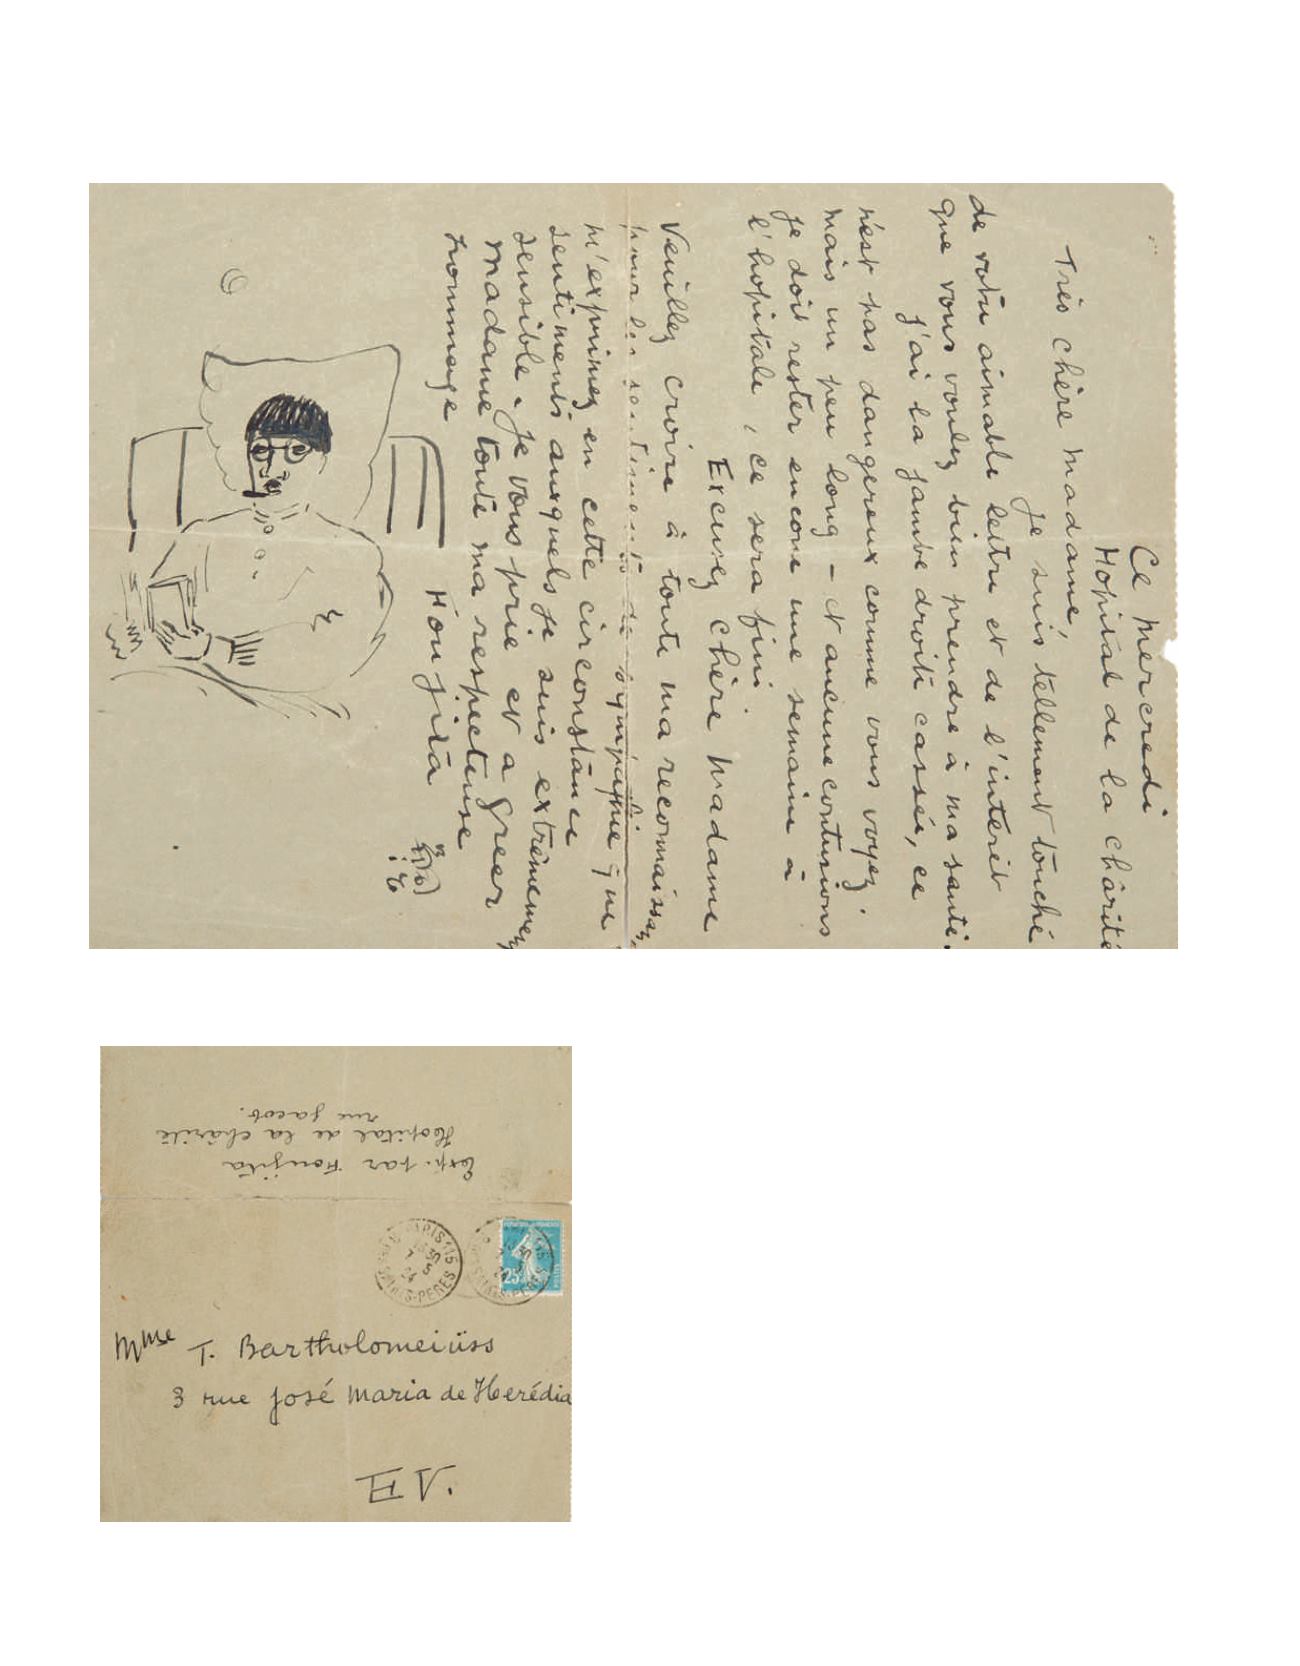 Ce mercredi
Hopital de la charité
Très chère madame,
Je suis tellement touché
de votre aimable lettre et de l'interêt
que vous voulez bien prendre à ma santé.
j'ai la jambe droite cassée, ce
n'est pas dangereux comme vous voyez.
mais un peu long - et aucune contusions
je doit rester encore une semaine à
l'hopitale, ce sera fini.
Excusez chère madame
Veuillez croire à toute ma reconnaissan
pour les sentiments de sympathie que
m'exprimez en cette circonstance
sentiments auxquels je suis extrêmement
sensible. Je vous prie et a greer
madame toute ma respecteuse
hommage
Foujita
Exp. par Foujita
Hopital de la charité
rue Jacob.
PARIS 115
7 5
24
STS-PERES
25c
Mme T. Bartholomeiüss
3 rue José Maria de Herédia
E.V.